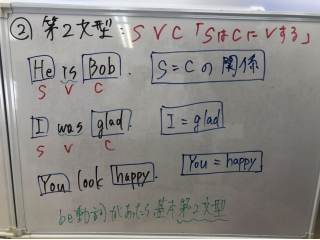 ② 第2文型: S V C 「SはCにVする」
He is Bob. S=Cの関係
S V C
I was glad. I = glad
S V C
You look happy. You = happy
be動詞があったら基本第2文型